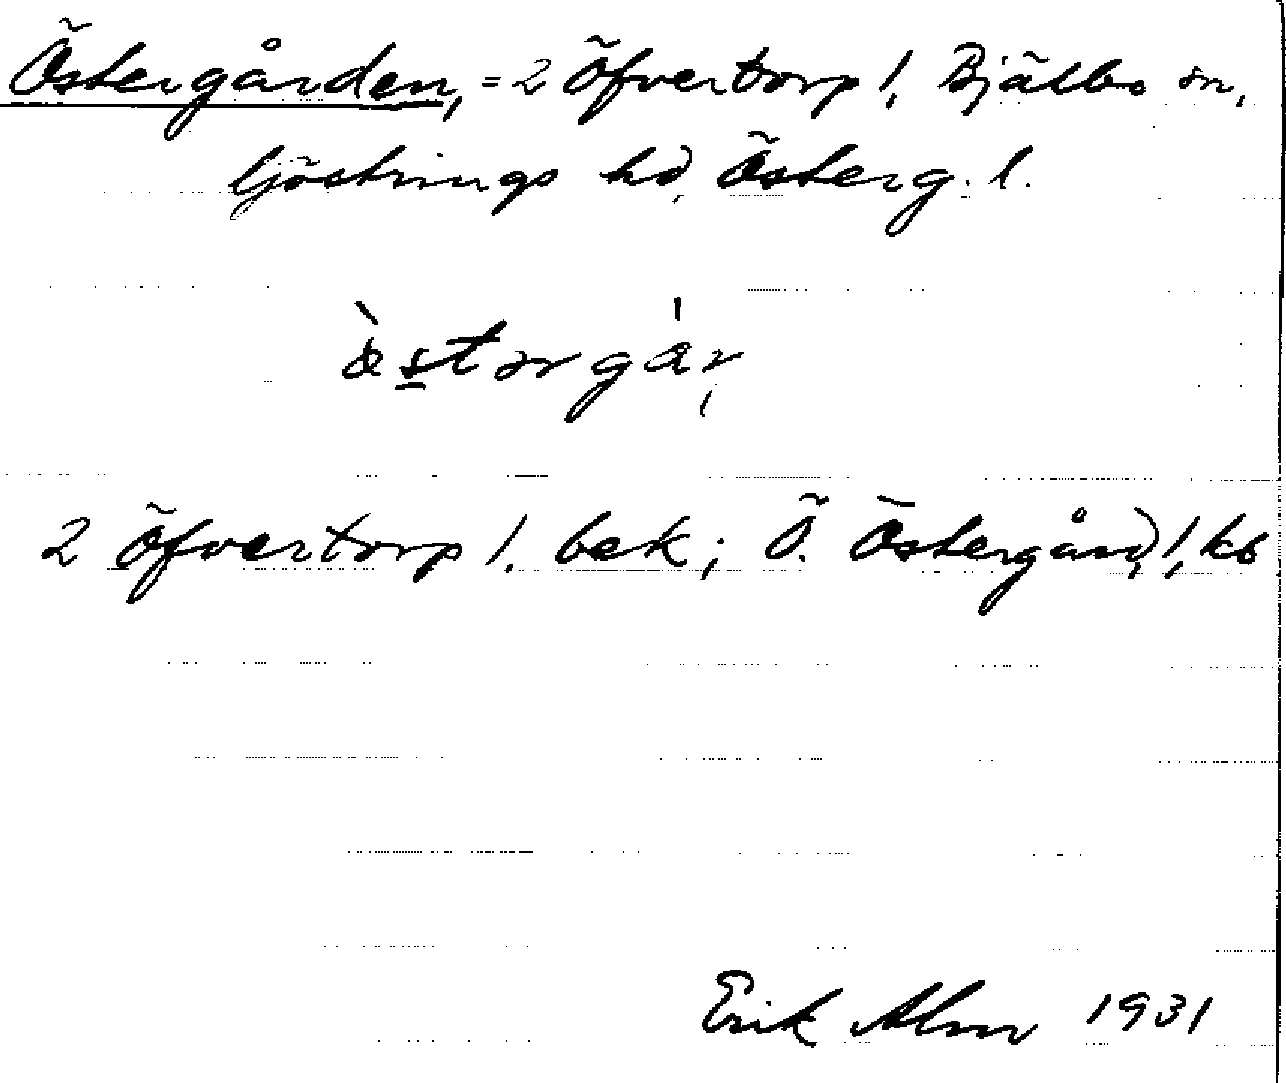 Östergården, = 2 Öfvertorp 1, Bjälbo sn,
Göstrings hd, Österg. l.
2 Öfvertorp 1, bek; Ö. Östergård, 1, kb
Erik Alm 1931